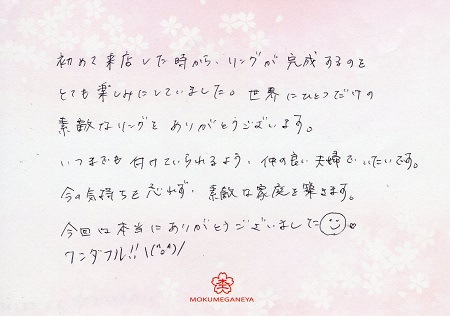 初めて来店した時から、リングが完成するのを
とても楽しみにしていました。世界にひとつだけの
素敵なリングを ありがとうございます。
いつまでも付けていられるよう、仲の良い夫婦でいたいです。
今の気持ちを忘れず、素敵な家庭を築きます。
今回は本当にありがとうございました
ワンダフル!! \(^o^)/
MOKUMEGANEYA